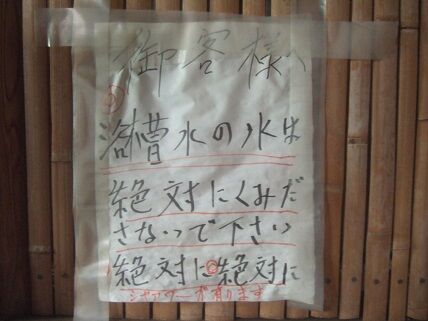 御客様へ
浴槽水の水は
絶対にくみだ
さないで下さい
絶対に絶対に
シャワーが有ります